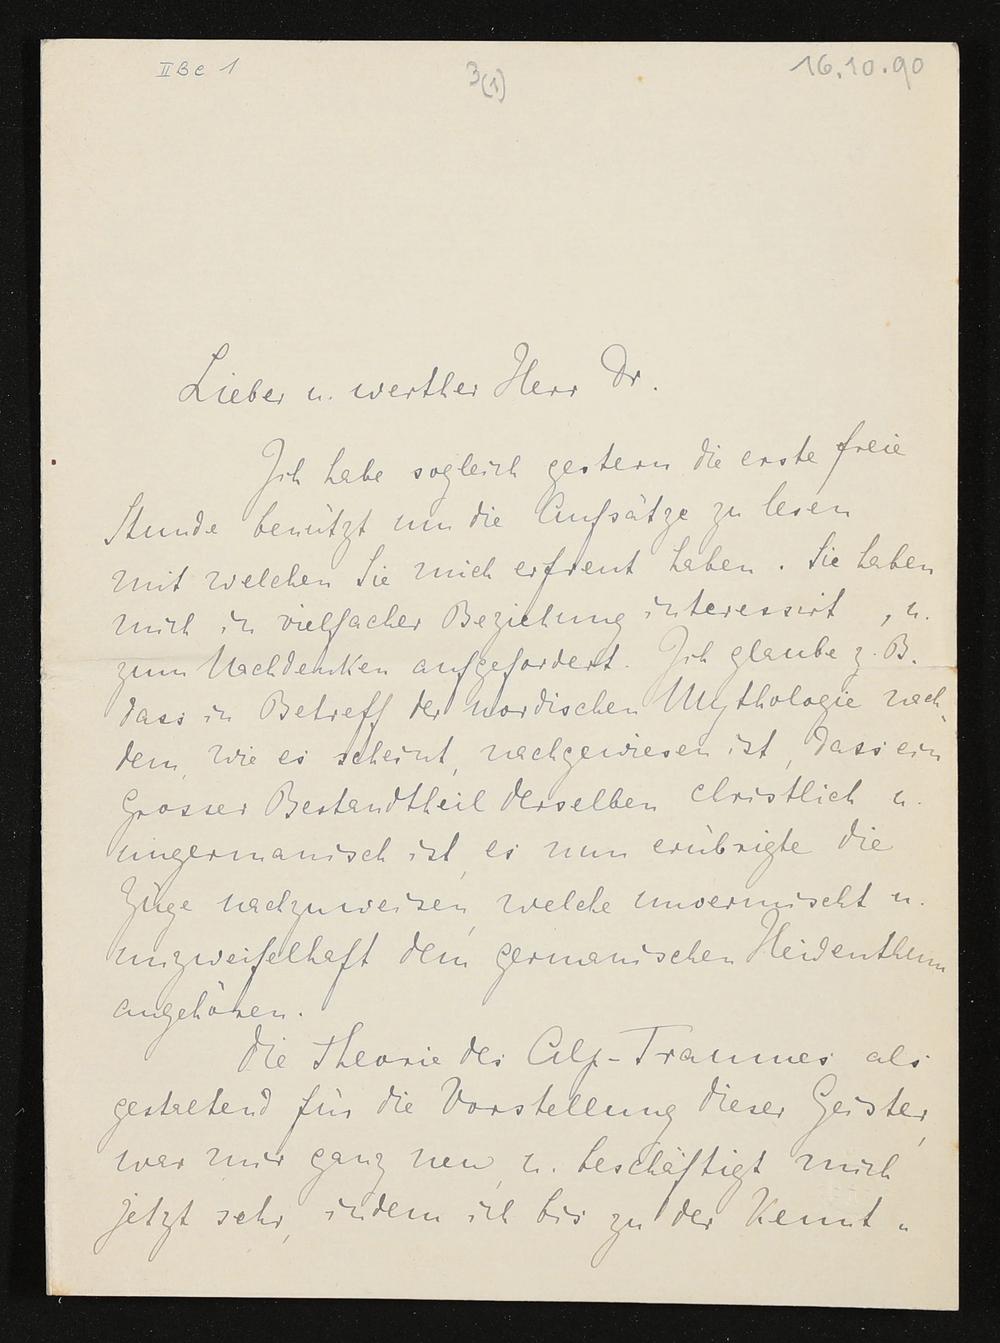 II Be 1
3(1)
16.10.90
Lieber u. werther Herr Dr.
Ich habe sogleich gestern die erste freie
Stunde benützt um die Aufsätze zu lesen
mit welchen Sie mich erfreut haben. Sie haben
mich in vielfacher Beziehung interessirt, u.
zum Nachdenken aufgefordert. Ich glaube z. B.
dass in Betreff der nordischen Mythologie nach-
dem, wie es scheint, nachgewiesen ist, dass ein
grosser Bestandtheil derselben christlich u.
ungermanisch ist, es nun erübrigte die
Züge nachzuweisen, welche unvermischt u.
unzweifelhaft dem germanischen Heidenthum
angehören.
Die Theorie des Alp-Traumes als
gestaltend für die Vorstellung dieser Geister,
war mir ganz neu, u. beschäftigt mich
jetzt sehr, indem ich bis zu der Kennt-